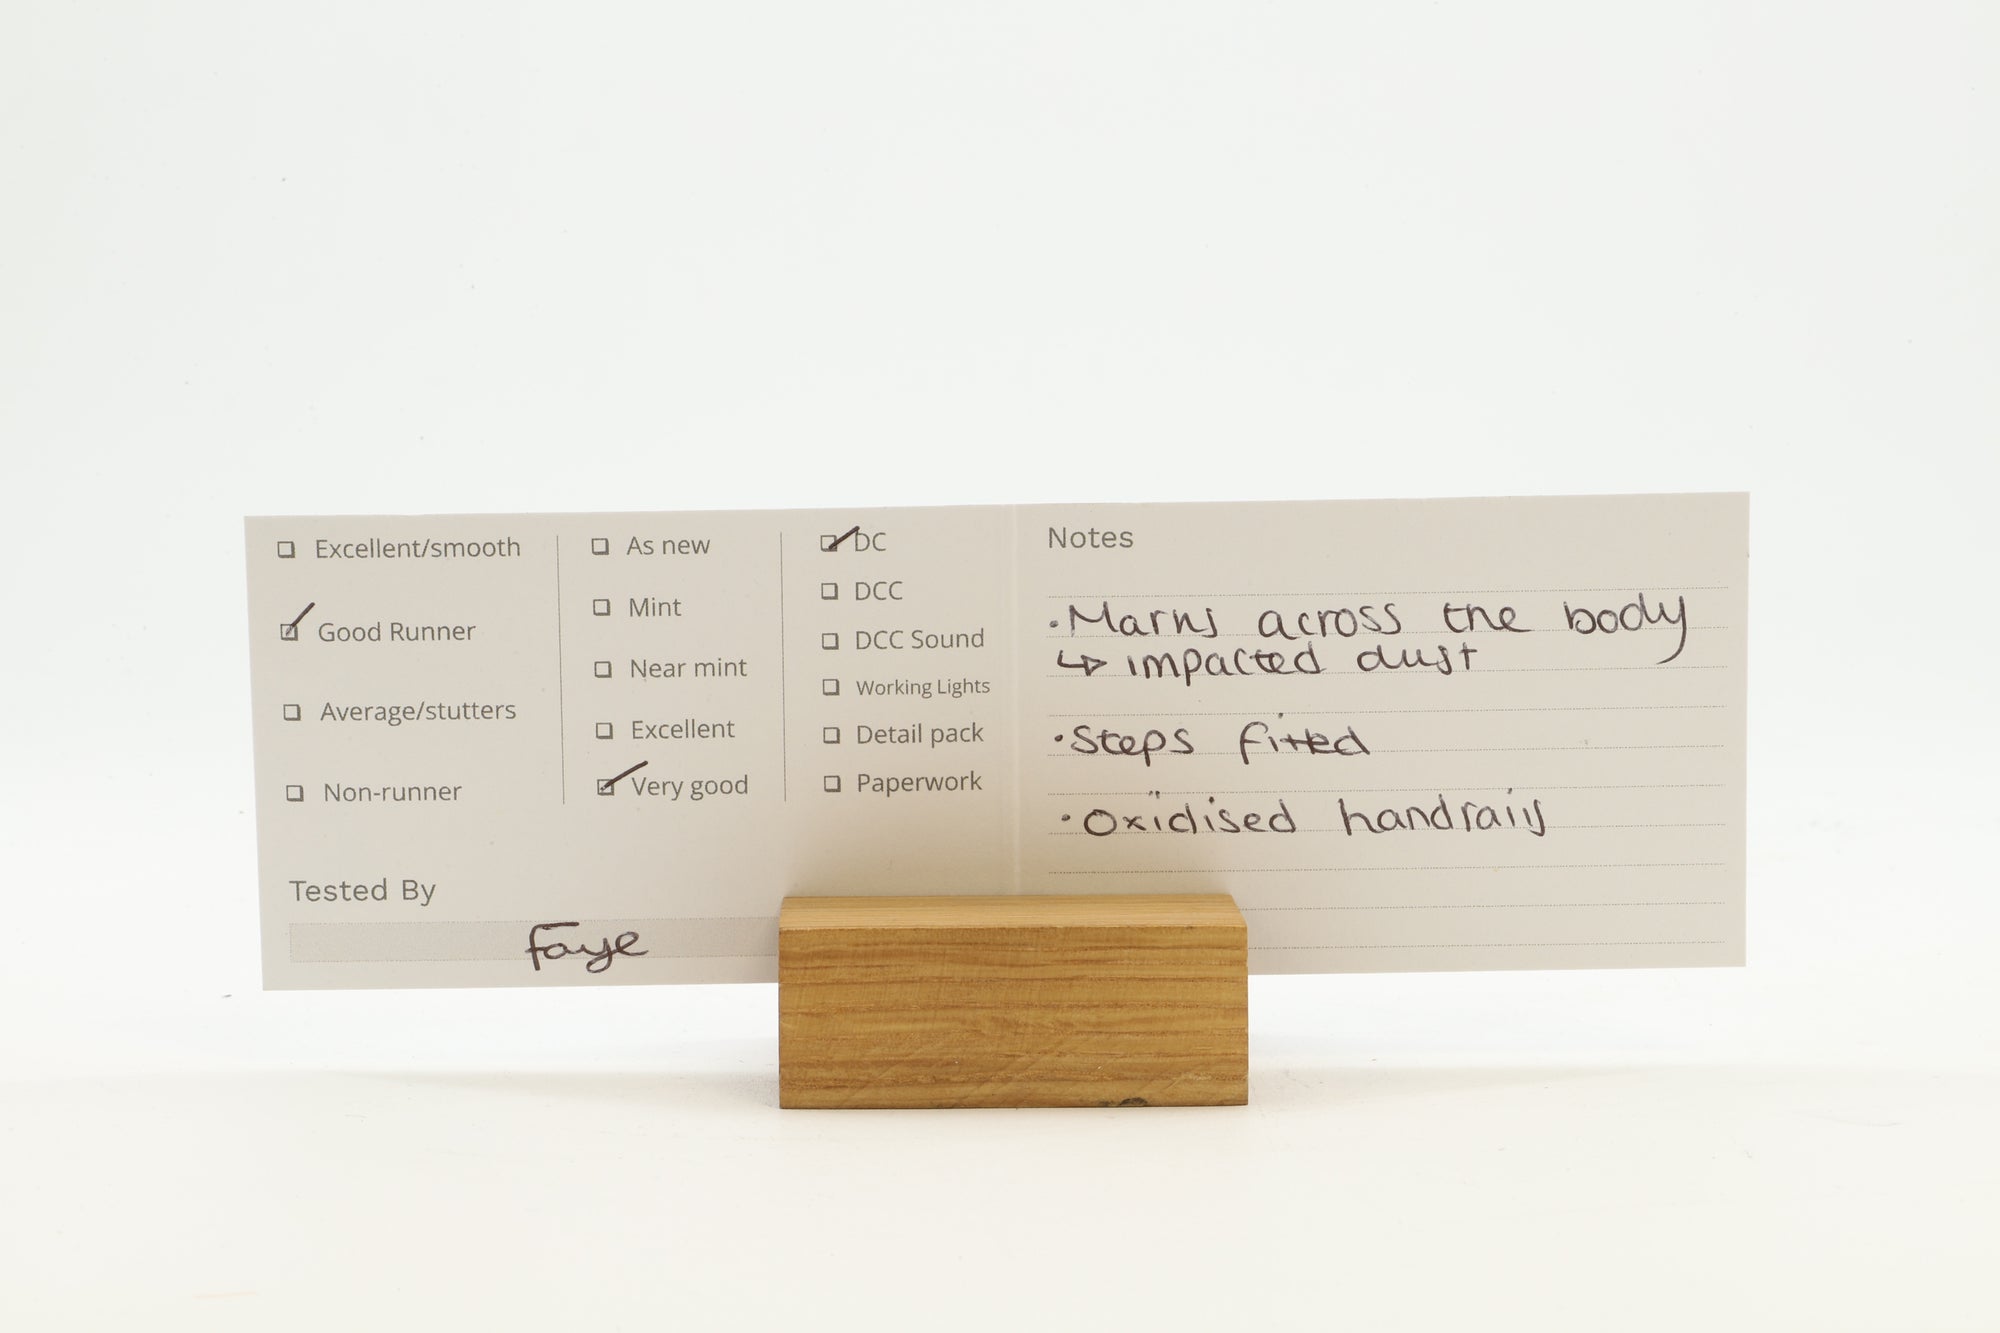 Excellent/smooth
Good Runner
Average/stutters
Non-runner
As new
Mint
Near mint
Excellent
Very good
DC
DCC
DCC Sound
Working Lights
Detail pack
Paperwork
Tested By
Faye
Notes
• Marks across the body
↳ impacted dust
• Steps fitted
• Oxidised handrails